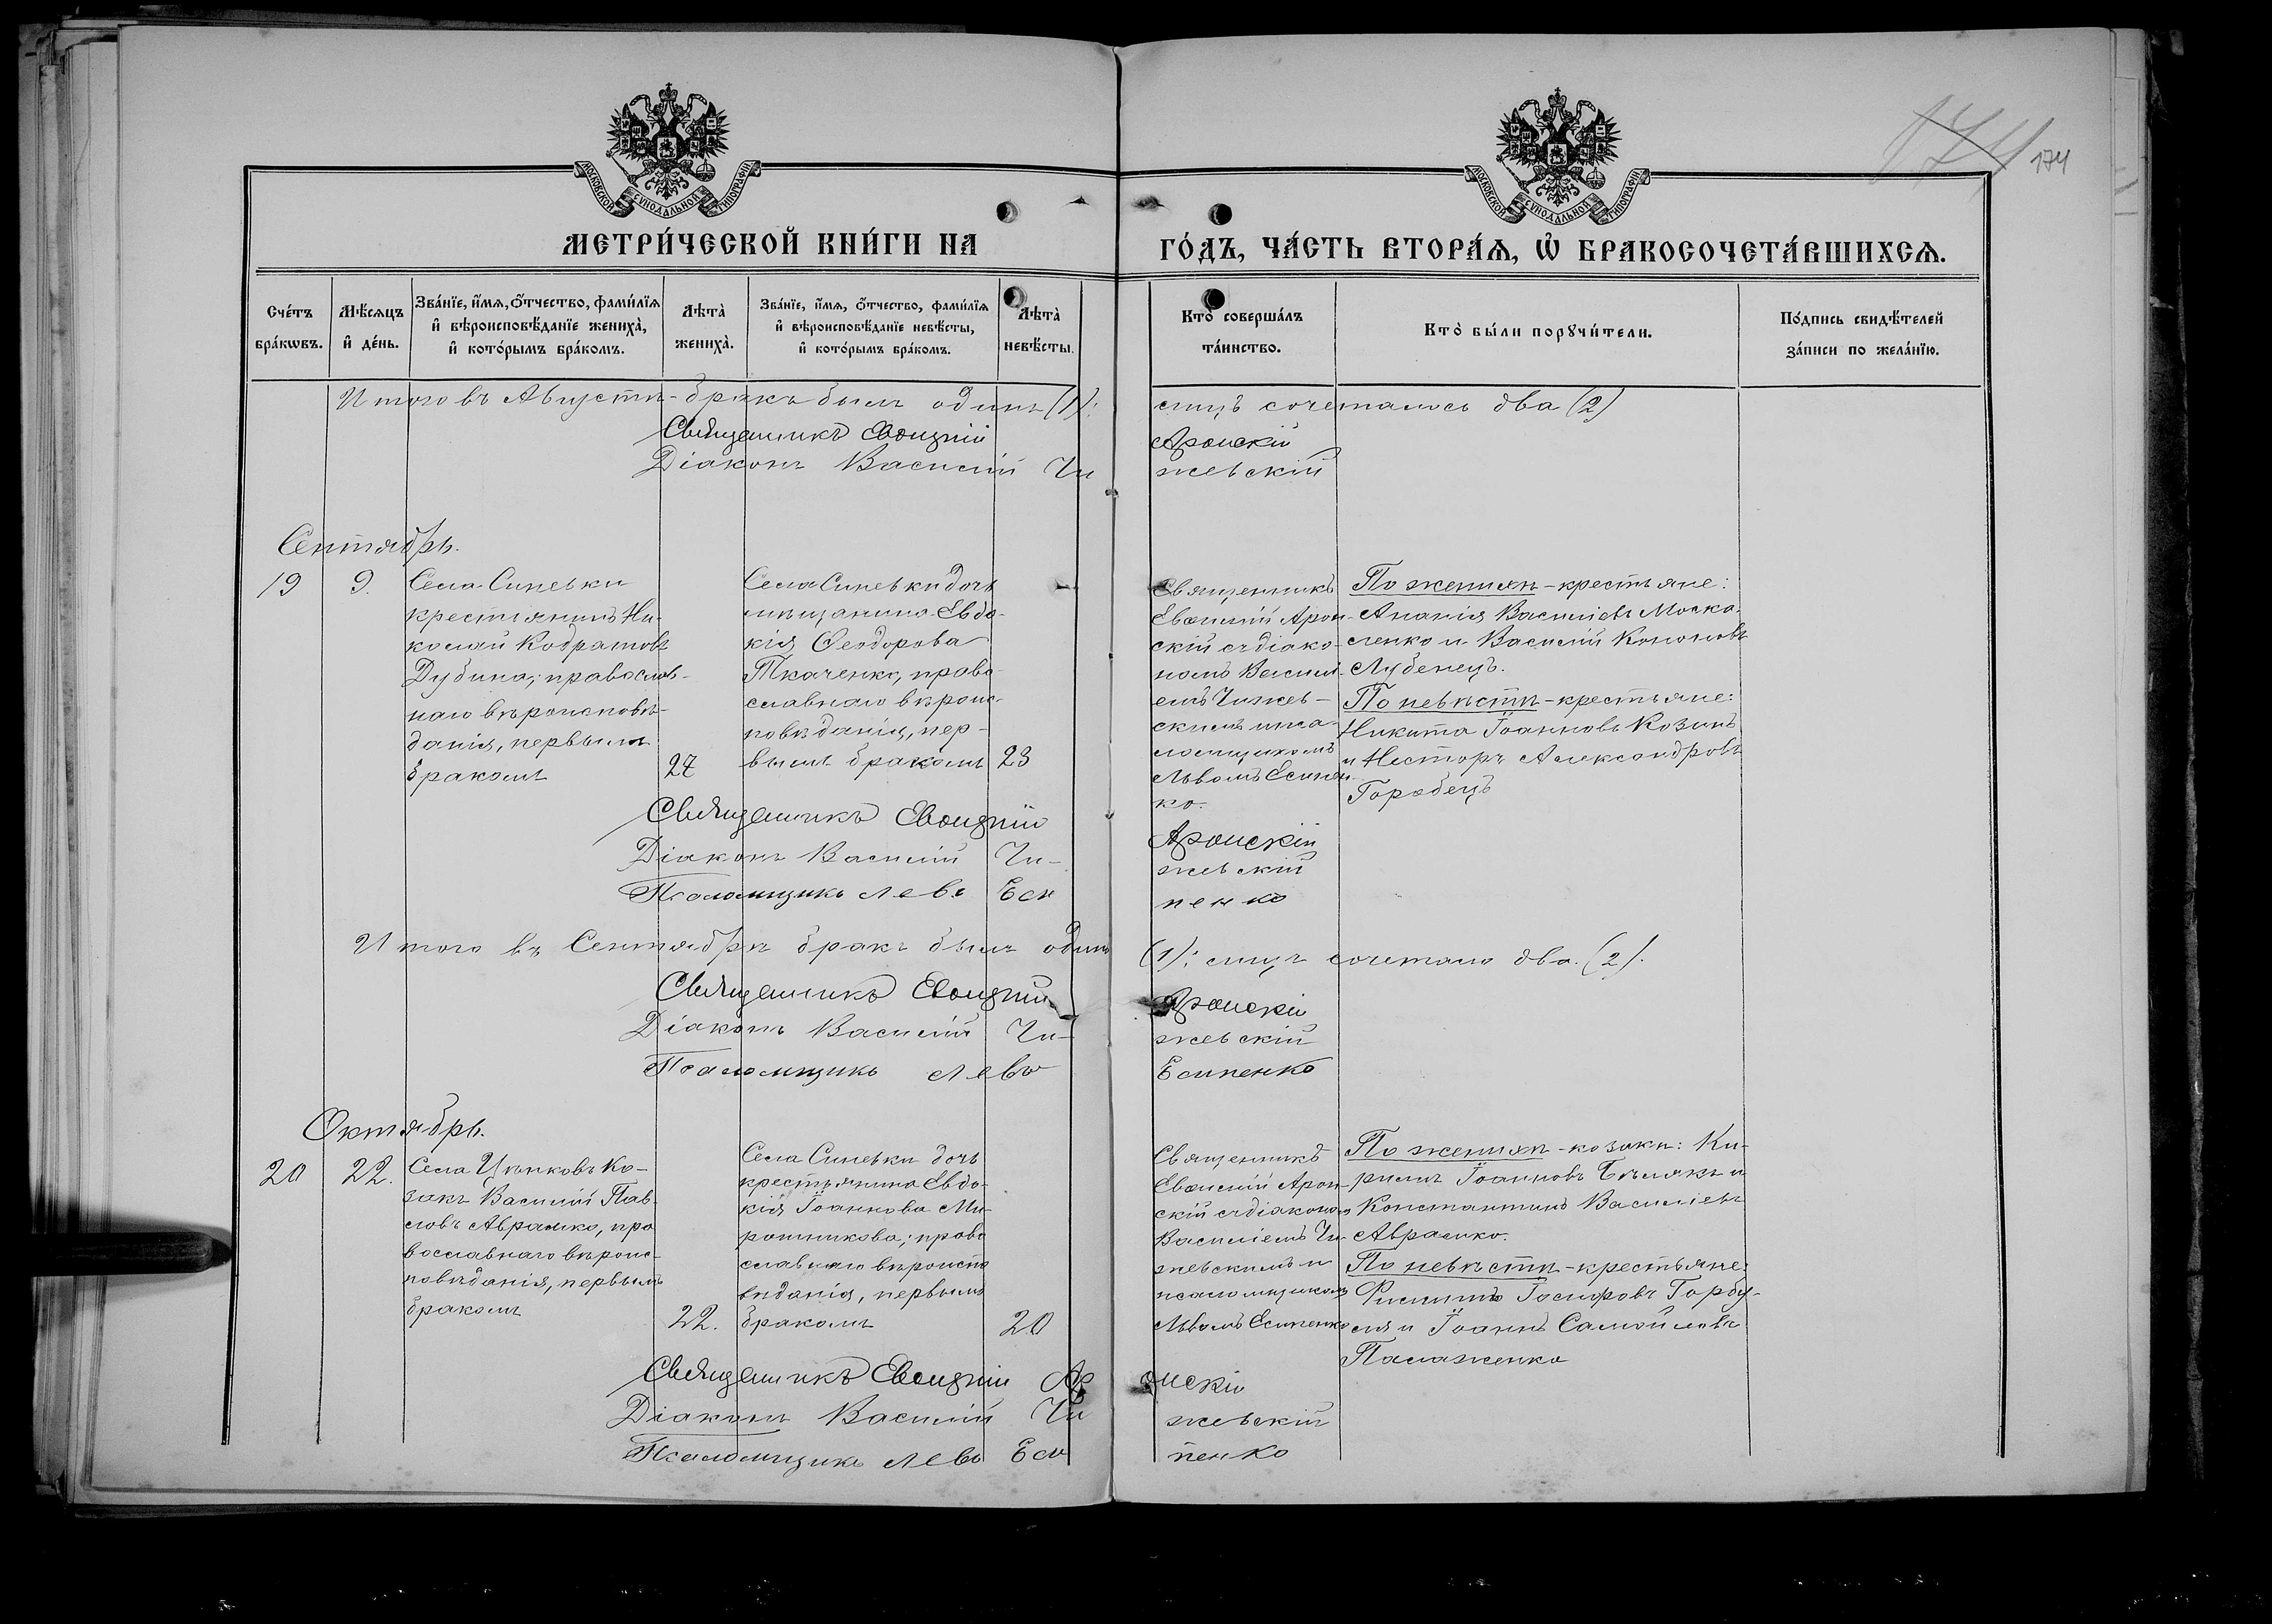 МОСКОВСКОЙ СѴНОДАЛЬНОЙ ТИПОГРАФІИ
МОСКОВСКОЙ СѴНОДАЛЬНОЙ ТИПОГРАФІИ
174
174
МЕТРИ́ЧЕСКОЙ КНИ́ГИ НА
ГО́ДЪ, ЧА́СТЬ ВТОРА́Ѧ, Ѡ҆ БРАКОСОЧЕТА́ВШИХСѦ.
Сче́тъ
бра́кѡвъ.
Мѣ́сяцъ
и҆ де́нь.
Зва́нїе, и҆́мя, ѻ҆́тчество, фами́лїя
и҆ вѣроисповѣ́данїе жениха̀,
и҆ кото́рымъ бра́комъ.
Лѣ́та̀
жениха̀.
Зва́нїе, и҆́мя, ѻ҆́тчество, фами́лїя
и҆ вѣроисповѣ́данїе невѣ́сты,
и҆ кото́рымъ бра́комъ.
Лѣ́та̀
невѣ́сты.
Кто̀ соверша́лъ
та́инство.
Кто̀ бы́ли порꙋчи́тели.
По́дпись свидѣ́телей
за́писи по жела́нїю.
Итого въ Августѣ - бракъ былъ одинъ (1):
лицъ сочеталось два (2)
Священникъ Евѳимій
Аронскій
Діаконъ Василій Чи
жевскій
Сентябрь.
19
9.
Села Синевки
крестьянинъ Ни-
колай Кодратовъ
Дубина; православ-
наго вѣроисповѣ-
данія, первымъ
бракомъ
27
Села Синевки дочь
мѣщанина Евдо-
кія Ѳеодорова
Ткаченко, право-
славнаго вѣроис-
повѣданія, пер-
вымъ бракомъ
23
Священникъ
Евѳимій Арон-
скій съ діако-
номъ Васили-
емъ Чижев-
скимъ и пса-
ломщикомъ
Львомъ Есипен-
ко.
По женихѣ - крестьяне:
Ананія Василіевъ Моска-
ленко и Василій Кононовъ
Лубенецъ.
По невѣстѣ - крестьяне:
Никита Іоанновъ Козинъ
и Несторъ Александровъ
Горобецъ
Священникъ Евѳимій
Аронскій
Діаконъ Василій Чи-
жевскій
Псаломщикъ Левъ Еси
пенко
Итого въ Сентябрѣ бракъ былъ одинъ
(1); лицъ сочетало два. (2).
Священникъ Евѳимій
Аронскій
Діаконъ Василій Чи-
жевскій
Псаломщикъ Левъ
Есипенко
Октябрь.
20
22.
Села Цѣпковъ ко-
закъ Василій Пав-
ловъ Аврамко, пра
вославнаго вѣроис-
повѣданія, первымъ
бракомъ
22.
Села Синевки дочь
крестьянина Евдо-
кія Іоаннова Ми-
рошникова; право
славнаго вѣроиспо
вѣданія, первымъ
бракомъ
20
Священникъ
Евѳимій Арон-
скій съ діакономъ
Василіемъ Чи-
жевскимъ и
псаломщикомъ
Львомъ Есипенко
По женихѣ - козаки: Ки-
риллъ Іоанновъ Бѣлякъ и
Константинъ Василіевъ
Аврамко.
По невѣстѣ - крестьяне:
Филиппъ Іосифовъ Горбу-
ля и Іоаннъ Самойловъ
Палаженко
Священникъ Евѳимій Ар
онскій
Діаконъ Василій Чи
жевскій
Псаломщикъ Левъ Еси
пенко